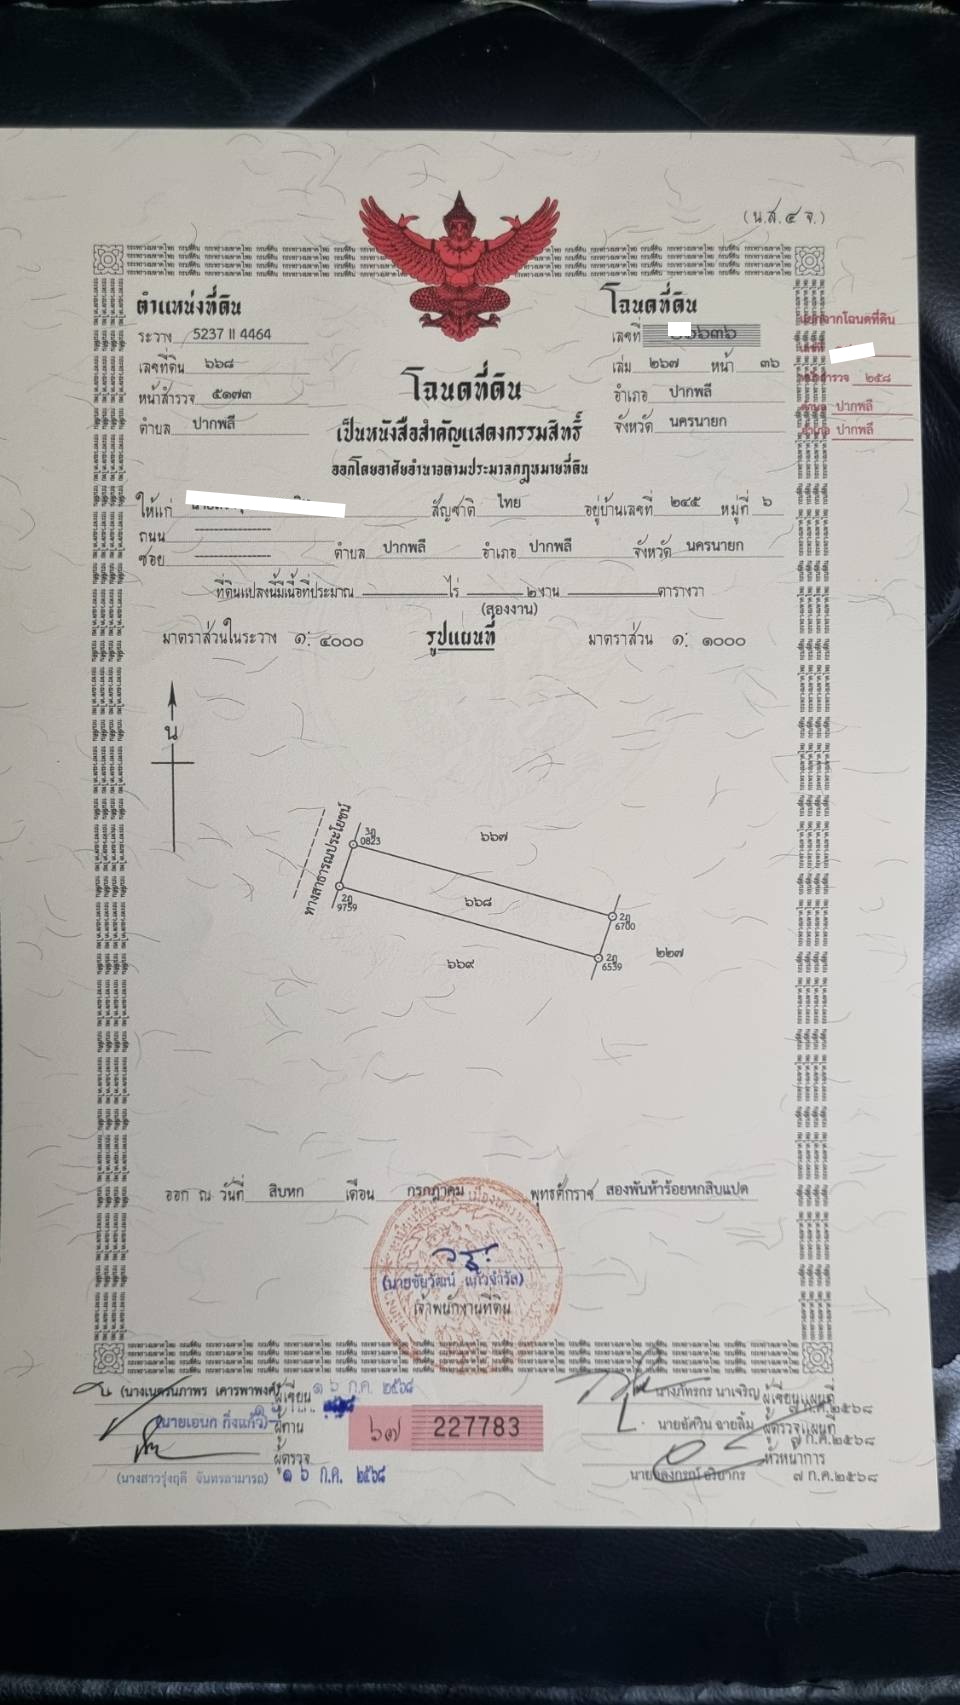 (น.ส.๔ จ.)
ตำแหน่งที่ดิน
ระวาง 5237 II 4464
เลขที่ดิน ๖๖๘
หน้าสำรวจ ๕๑๗๓
ตำบล ปากพลี
โฉนดที่ดิน
เลขที่
เล่ม ๒๖๗ หน้า ๓๖
อำเภอ ปากพลี
จังหวัด นครนายก
แยกจากโฉนดที่ดิน
เลขที่
หน้าสำรวจ ๒๕๘
ตำบล ปากพลี
อำเภอ ปากพลี
โฉนดที่ดิน
เป็นหนังสือสำคัญแสดงกรรมสิทธิ์
ออกโดยอาศัยอำนาจตามประมวลกฎหมายที่ดิน
ให้แก่ สัญชาติ ไทย อยู่บ้านเลขที่ ๒๔๕ หมู่ที่ ๖
ถนน
ซอย ตำบล ปากพลี อำเภอ ปากพลี จังหวัด นครนายก
ที่ดินแปลงนี้มีเนื้อที่ประมาณ ไร่ ๒ งาน ตารางวา
(สองงาน)
มาตราส่วนในระวาง ๑: ๔๐๐๐ รูปแผนที่ มาตราส่วน ๑: ๑๐๐๐
น
ทางสาธารณประโยชน์
3ฎ
0823
๖๖๗
2ฎ
9759
๖๖๘
2ฎ
6700
2ฎ
6539
๖๖๙
๒๒๗
ออก ณ วันที่ สิบหก เดือน กรกฎาคม พุทธศักราช สองพันห้าร้อยหกสิบแปด
(นายชัยวัฒน์ แก้วจำรัส)
เจ้าพนักงานที่ดิน
ผู้เขียน ๑๖ ก.ค. ๒๕๖๘
(นายเอนก กิ่งแก้ว) ผู้ทาน
ผู้ตรวจ
(นางสาวรุ่งฤดี จันทลามารถ) ๑๖ ก.ค. ๒๕๖๘
๖๗ 227783
นางภัทรกร นาเจริญ ผู้เขียนแผนที่
๗ ก.ค.๒๕๖๘
นายอัศวิน ฉายลิ้ม ผู้ตรวจแผนที่
๗ ก.ค.๒๕๖๘
หัวหน้าการ
๗ ก.ค.๒๕๖๘